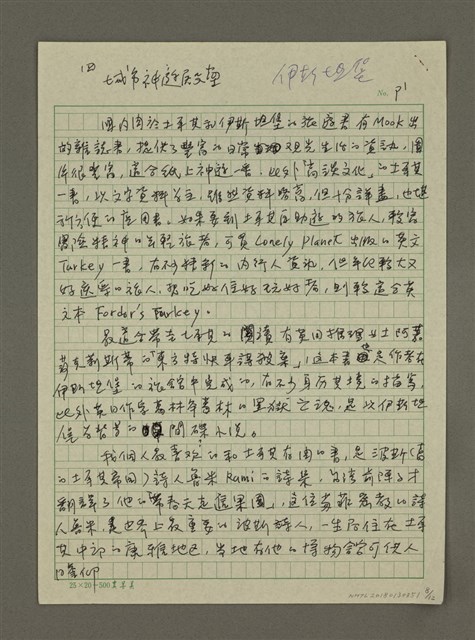 (四) 城市神遊展文案
伊斯坦堡
No. P1
國內關於土耳其和伊斯坦堡的旅遊書有Mook出
的雜誌書，提供了豐富的日常觀光生活的資訊，圖
片很豐富，適合紙上神遊一番，此外「高談文化」的土耳其
一書，以文字資料為主，雖然資料略舊，但十分詳盡，也堪
稱方便的應用書。如果要到土耳其自助遊的旅人，較富
冒險精神的年輕旅者，可買Lonely Planet出版的英文
Turkey一書，有不少精彩的內行人資訊，但年紀較大又
好逸樂的旅人，想吃好住好玩好者，則較適合英
文本Fordor's Turkey。
最適合帶去土耳其的閱讀有英國推理女士阿嘉
莎克莉斯蒂的「東方特快車謀殺案」，這本書是作者在
伊斯坦堡的旅館中完成的，有不少身歷其境的描寫，
此外英國作家葛林
是以伊斯坦
堡為背景的間碟小說。
我個人最喜歡的和土耳其有關的書，是波斯(舊
的土耳其帝國)詩人魯米Rumi的詩集，台灣前陣子才
翻譯了他的「在春天走進果園」，這位
的詩
人魯米，是世界上最重要的波斯詩人，一生居住在土耳
其中部的康雅地區，當地有他的博物館可供人
25×20=500
NMTL20180130351
8/12